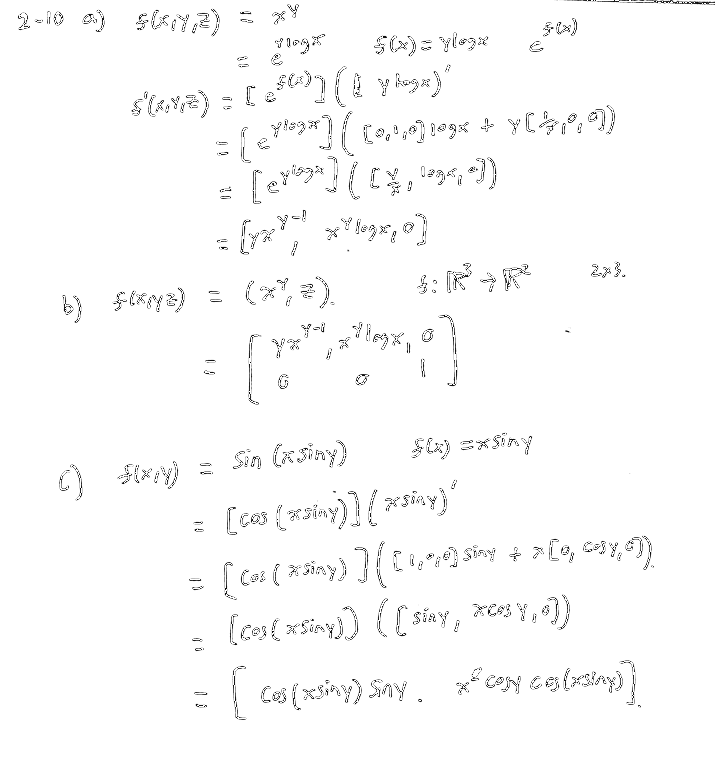 2-10 a) f(x,y,z) = x^y
= e^{ylogx} f(x) = ylogx e^{f(x)}
f'(x,y,z) = [e^{f(x)}] ( ylogx)'
= [e^{ylogx}] ([0,1,0] logx + y[1/x,0,0])
= [e^{ylogx}] ([y/x, logx, 0])
= [yx^{y-1}, x^y logx, 0]
b) f(x,y,z) = (x^y, z). f: ℝ^3 → ℝ^2 2x3.
= [ yx^{y-1}, x^y logx, 0
0 0 1 ]
c) f(x,y) = sin (x siny) f(x) = x siny
= [cos (x siny)] (x siny)'
= [cos (x siny)] ([1,0,0] siny + x[0, cosy, 0])
= [cos(x siny)] ([siny, x cosy, 0])
= [ cos(x siny) siny . x cosy cos(x siny)].